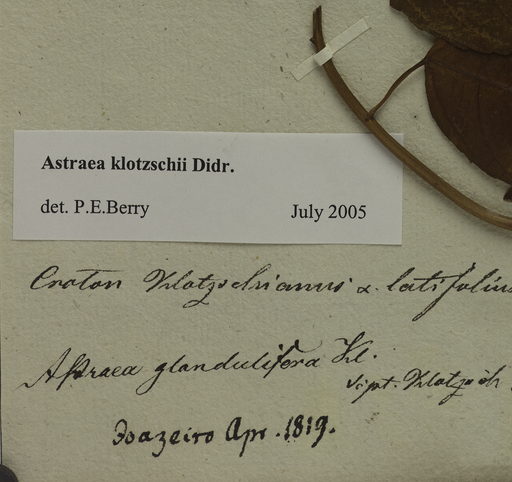 Astraea klotzschii Didr.
det. P.E.Berry July 2005
Croton Klotzschianus α. latifolius
Astraea glandulifera Kl.
Klotzsch
Joazeiro Apr. 1819.